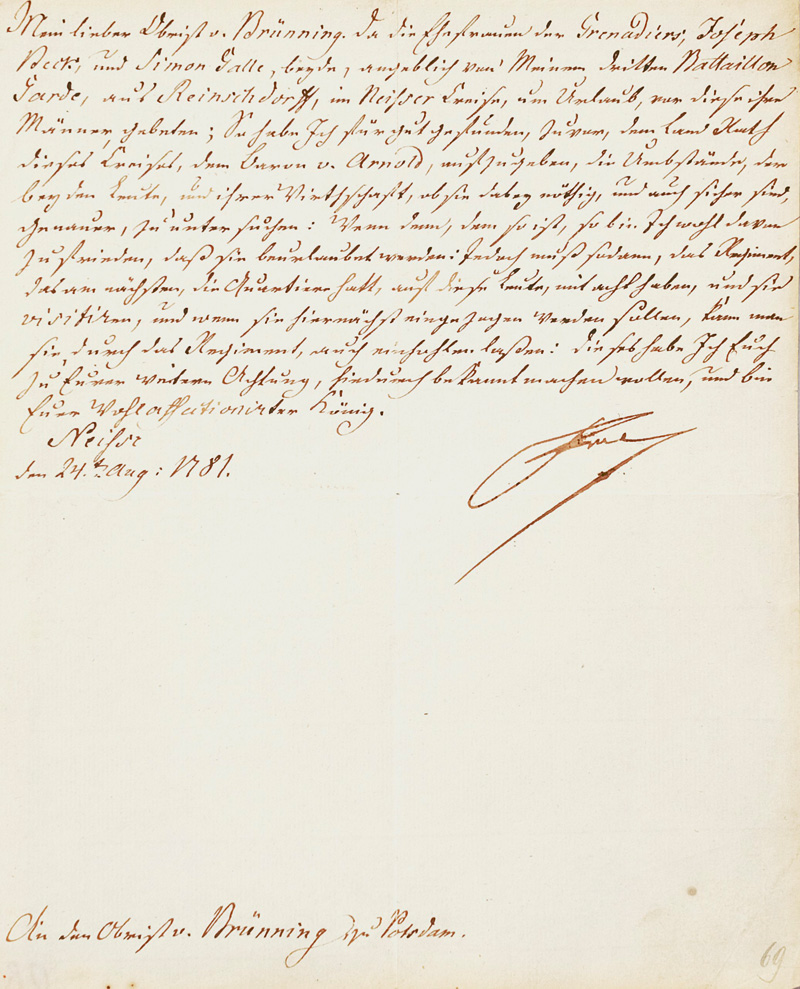 Mein lieber Obrist v. Brünning. Da die Ehefrauen der Grenadiers, Joseph
Beck, und Simon Galle, beyde, angeblich von Meinem dritten Battaillon
Garde, aus Reinschdorff, im Neisser Creise, um Urlaub, vor diese ihre
Männer, gebeten; So habe Ich für gut gefunden, zuvor, dem Land Rath
dieses Creises, dem Baron v. Arnold, aufzugeben, die Umbstände, der
beyden Leute, und ihrer Wirthschafft, ob sie dabey nöthig, und auch sicher sind,
genauer, zu untersuchen: Wenn dem, dem so ist, so bin Ich wohl davon
zufrieden, daß sie beurlaubet werden: Jedoch muß sodann, das Regiment,
das am nächsten, die Quartiere hatt, auf diese Leute, mit acht haben, und sie
visitiren, und wenn sie hiernächst eingezogen werden sollen, kann man
sie, durch das Regiment, auch einhohlen laßen: dieses habe Ich Euch
zu Eurer weitern Achtung, hiedurch bekannt machen wollen, und bin
Euer Wohlaffectionirter König.
Neisse
den 24.t Aug: 1781.
An den Obrist v. Brünning zu Potsdam.
69